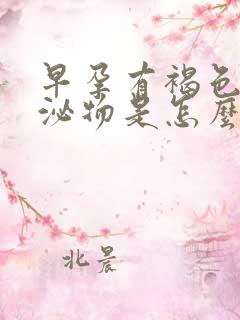 早孕有褐色
泌物是怎麼
北晨